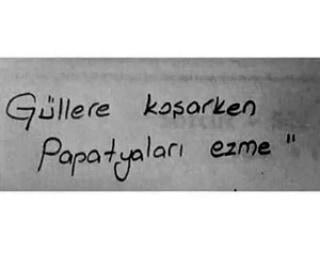 Güllere koşarken
Papatyaları ezme "